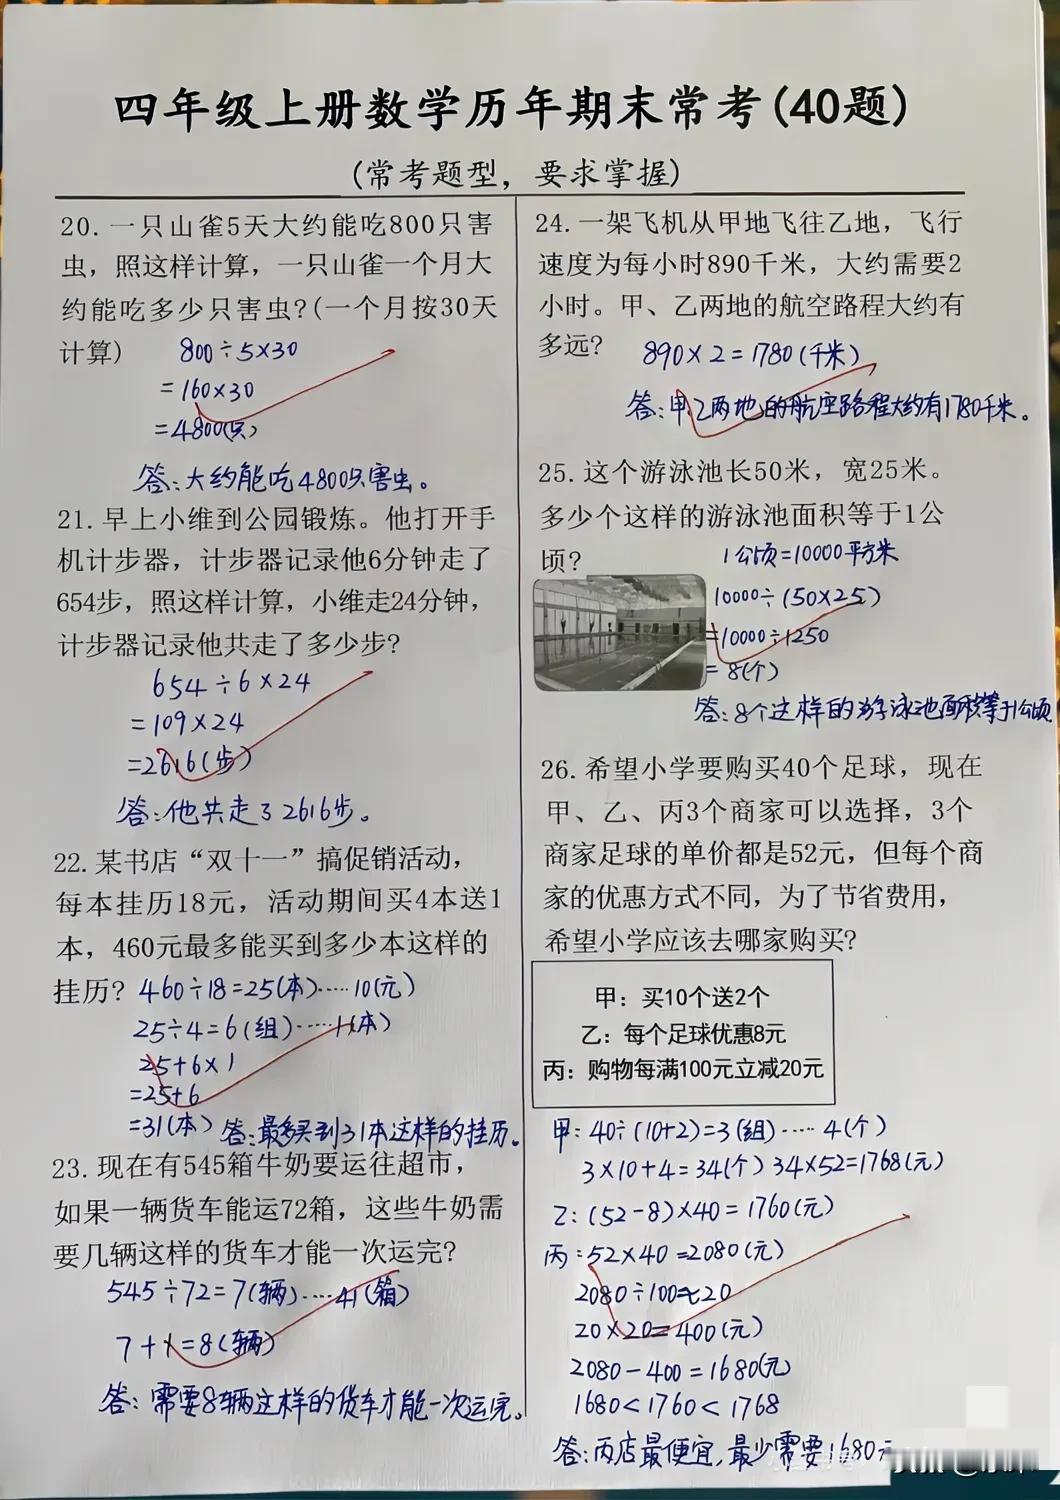 四年级上册数学历年期末常考(40题)
(常考题型，要求掌握)
20.一只山雀5天大约能吃800只害
虫，照这样计算，一只山雀一个月大
约能吃多少只害虫?(一个月按30天
计算)
800÷5×30
=160×30
=4800(只)
答:大约能吃4800只害虫。
21.早上小维到公园锻炼。他打开手
机计步器，计步器记录他6分钟走了
654步，照这样计算，小维走24分钟，
计步器记录他共走了多少步?
654÷6×24
=109×24
=2616(步)
答:他共走了2616步。
22.某书店“双十一”搞促销活动，
每本挂历18元，活动期间买4本送1
本，460元最多能买到多少本这样的
挂历?
460÷18=25(本)……10(元)
25÷4=6(组)……1(本)
25+6×1
=25+6
=31(本)
答:最多买到31本这样的挂历。
23.现在有545箱牛奶要运往超市，
如果一辆货车能运72箱，这些牛奶需
要几辆这样的货车才能一次运完?
545÷72=7(辆)……41(箱)
7+1=8(辆)
答:需要8辆这样的货车才能一次运完。
24.一架飞机从甲地飞往乙地，飞行
速度为每小时890千米，大约需要2
小时。甲、乙两地的航空路程大约有
多远?
890×2=1780(千米)
答:甲乙两地的航空路程大约有1780千米。
25.这个游泳池长50米，宽25米。
多少个这样的游泳池面积等于1公
顷?
1公顷=10000平方米
10000÷(50×25)
=10000÷1250
=8(个)
答:8个这样的游泳池面积等于1公顷
26.希望小学要购买40个足球，现在
甲、乙、丙3个商家可以选择，3个
商家足球的单价都是52元，但每个商
家的优惠方式不同，为了节省费用，
希望小学应该去哪家购买?
甲：买10个送2个
乙：每个足球优惠8元
丙：购物每满100元立减20元
甲:40÷(10+2)=3(组)……4(个)
3×10+4=34(个) 34×52=1768(元)
乙:(52-8)×40=1760(元)
丙:52×40=2080(元)
2080÷100≈20
20×20=400(元)
2080-400=1680(元)
1680<1760<1768
答:丙店最便宜,最少需要1680